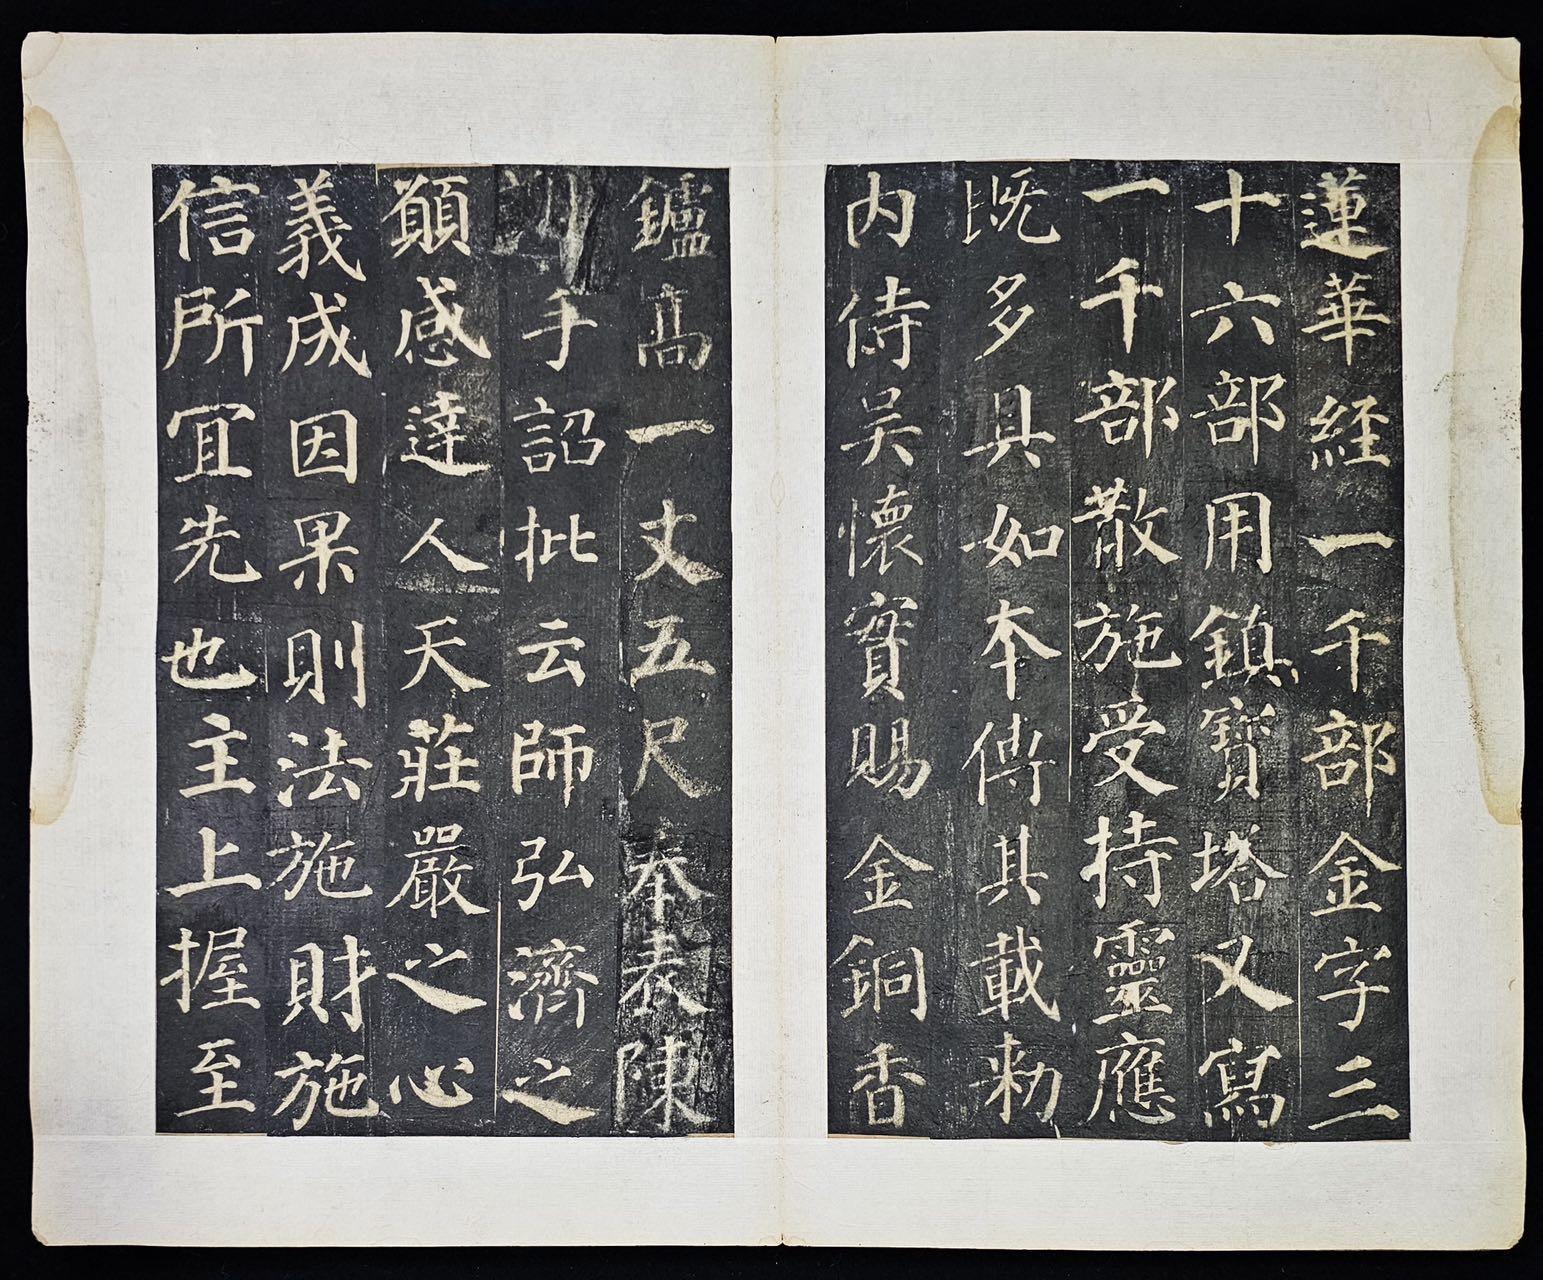 蓮華經一千部金字三
十六部用鎮寶塔又寫
一千部散施受持靈應
既多具如本傳其載勑
内侍吳懷實賜金銅香
鑪高一丈五尺奉表陳
手詔批云師弘濟之
願感達人天莊嚴之心
義成因果則法施財施
信所宜先也主上握至